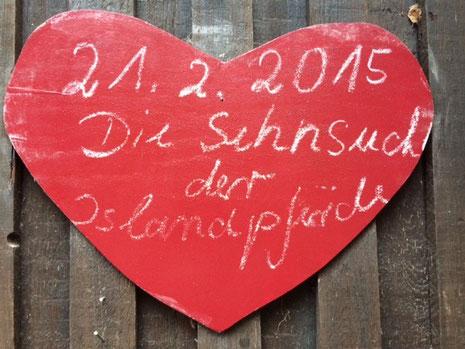 21. 2. 2015
Die Sehnsuch
der
Islandpferde